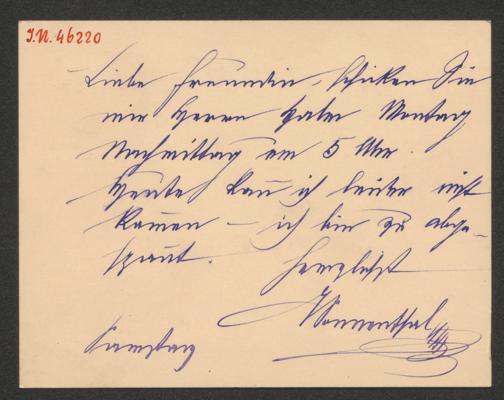 I.N. 46220
Liebe Freundin, schicken Sie
mir Herrn Montag
Nachmittag um 5 Uhr.
Heute kan̅ ich leider nicht
kom̅en – ich bin zu abge-
span̅t. Herzlichst
Sonnenthal
Samstag